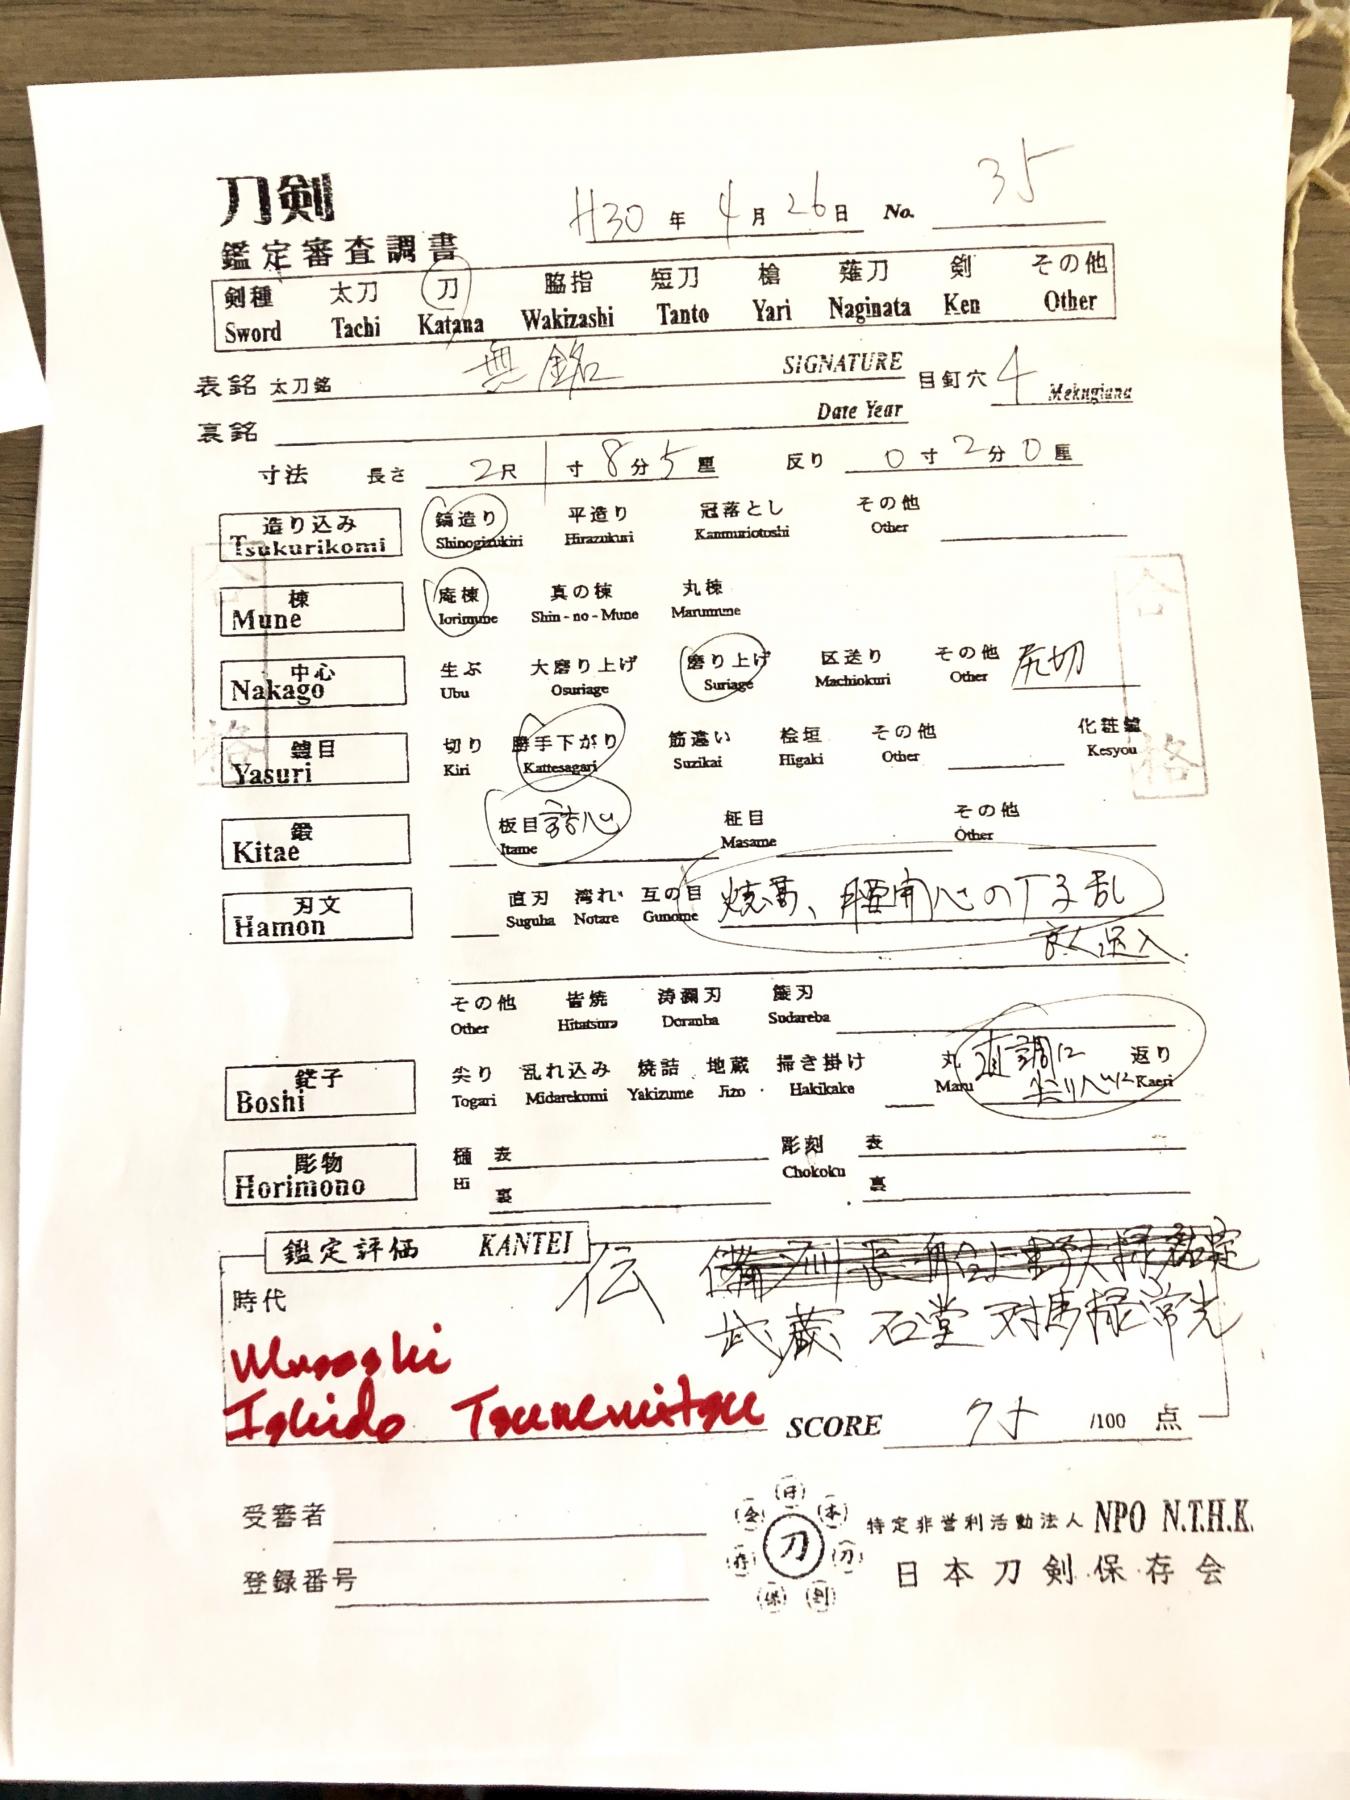 刀剣
H30年 4月26日 No. 35
鑑定審査調書
剣種 太刀 刀 脇指 短刀 槍 薙刀 剣 その他
Sword Tachi Katana Wakizashi Tanto Yari Naginata Ken Other
表銘 太刀銘 無銘 SIGNATURE 目釘穴 4 Mekugiana
裏銘 Date Year
寸法 長さ 2尺1寸8分5厘 反り 0寸2分0厘
造り込み 鎬造り 平造り 冠落とし その他
Tsukurikomi Shinogizukiri Hirazukuri Kanmuriotoshi Other
合格
合格
棟 庵棟 真の棟 丸棟
Mune Iorimune Shin-no-Mune Marumune
中心 生ぶ 大磨り上げ 磨り上げ 区送り その他 尻切
Nakago Ubu Osuriage Suriage Machiokuri Other
鑢目 切り 勝手下がり 筋違い 桧垣 その他 化粧鑢
Yasuri Kiri Kattesagari Suzikai Higaki Other Kesyou
鍛 板目 詰心 柾目 その他
Kitae Itame Masame Other
刃文 直刃 湾れ 互の目 焼高、腰開心の丁子乱
Hamon Suguha Notare Gunome
その他 皆焼 涛瀾刃 簾刃
Other Hitatsura Doranba Sudareba
鋩子 尖り 乱れ込み 焼詰 地蔵 掃き掛け 丸 直調に 尖り心に 返り
Boshi Togari Midarekomi Yakizume Jizo Hakikake Maru Kaeri
彫物 樋 表 彫刻 表
Horimono Hi 裏 Chokoku 裏
鑑定評価 KANTEI
伝 備州長船上野大掾祐定
時代
武蔵 石堂 対馬掾常光
Musashi
Ishido Tsunemitsu
SCORE 75 /100 点
受審者
特定非営利活動法人 NPO N.T.H.K.
登録番号
日本刀剣保存会
刀
日本刀剣保存会